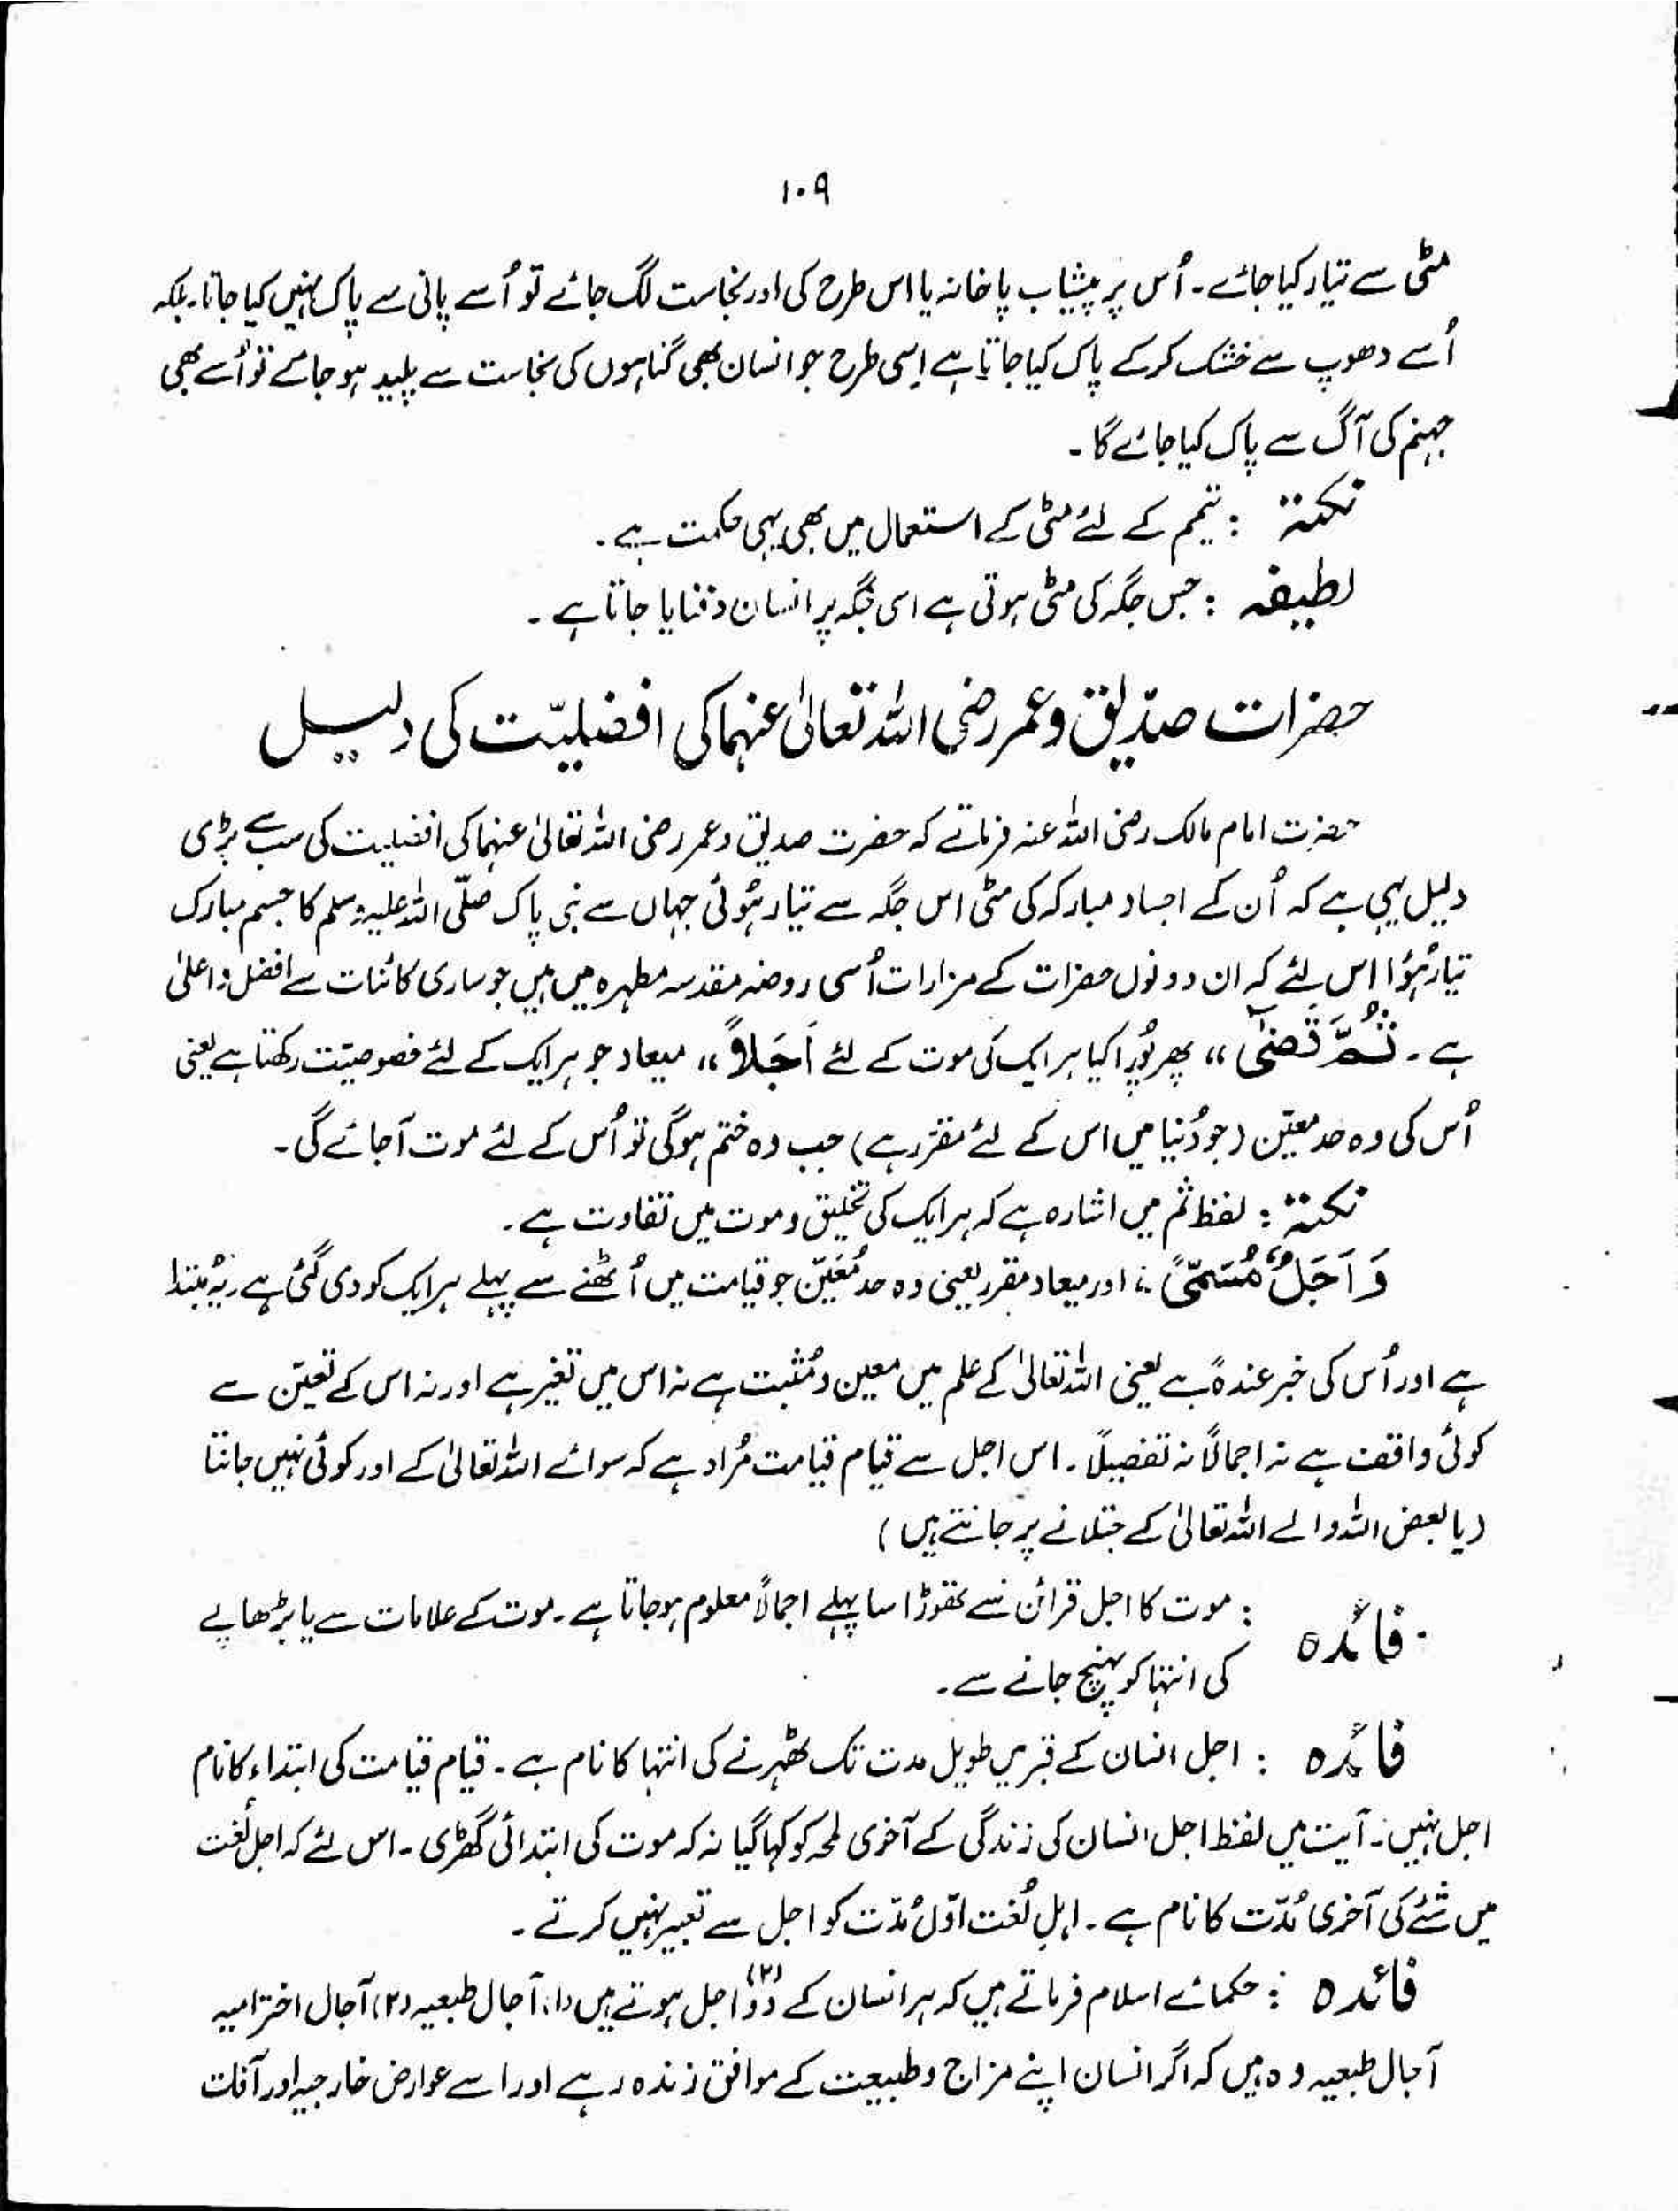 ۱۰۹
مٹی سے تیار کیا جائے۔ اُس پر پیشاب پاخانہ یا اس طرح کی اور نجاست لگ جائے تو اُسے پانی سے پاک نہیں کیا جاتا۔ بلکہ
اُسے دھوپ سے خشک کرکے پاک کیا جاتا ہے اِسی طرح جو انسان بھی گناہوں کی نجاست سے پلید ہو جائے تو اُسے بھی
جہنم کی آگ سے پاک کیا جائے گا۔
نکتہ : تیمم کے لئے مٹی کے استعمال میں بھی یہی حکمت ہے۔
لطیفہ : جس جگہ کی مٹی ہوتی ہے اسی جگہ پر انسان دفنایا جاتا ہے۔
حضرات صدّیق و عمر رضی اللہ تعالیٰ عنہما کی افضلیّت کی دلیل
حضرت امام مالک رضی اللہ عنہ فرماتے کہ حضرت صدیق و عمر رضی اللہ تعالیٰ عنہما کی افضلیت کی سب سے بڑی
دلیل یہی ہے کہ اُن کے اجساد مبارکہ کی مٹی اس جگہ سے تیار ہُوئی جہاں سے نبی پاک صلّی اللہ علیہ وسلم کا جسم مبارک
تیار ہُوَا اس لئے کہ ان دونوں حضرات کے مزارات اُسی روضہ مقدسہ مطہرہ میں ہیں جو ساری کائنات سے افضل و اعلیٰ
ہے۔ ثُمَّ قَضٰٓی ،، پھر پُورا کیا ہر ایک کی موت کے لئے اَجَلاً ،، میعاد جو ہر ایک کے لئے خصوصیّت رکھتا ہے یعنی
اُس کی وہ حد معیّن (جو دُنیا میں اس کے لئے مقرّر ہے) جب وہ ختم ہو گی تو اُس کے لئے موت آجائے گی۔
نکتہ : لفظ ثُم میں اشارہ ہے کہ ہر ایک کی تخلیق و موت میں تفاوت ہے۔
وَ اَجَلٌ مُّسَمًّی ،، اور میعاد مقرر یعنی وہ حد مُعَیّن جو قیامت میں اُٹھنے سے پہلے ہر ایک کو دی گئی ہے۔ یہ مُبتدا
ہے اور اُس کی خبر عندہٗ ہے یعنی اللہ تعالیٰ کے علم میں معین و مُثبت ہے نہ اس میں تغیّر ہے اور نہ اس کے تعیّن سے
کوئی واقف ہے نہ اجمالًا نہ تفصیلًا۔ اس اجل سے قیام قیامت مُراد ہے کہ سوائے اللہ تعالیٰ کے اور کوئی نہیں جانتا
(یا بعض اللہ والے اللہ تعالیٰ کے جتلانے پر جانتے ہیں)
فائدہ : موت کا اجل قرائن سے تھوڑا سا پہلے اجمالًا معلوم ہو جاتا ہے۔ موت کے علامات سے یا بڑھاپے
کی انتہا کو پہنچ جانے سے۔
فائدہ : اجل انسان کے قبر میں طویل مدت تک ٹھہرنے کی انتہا کا نام ہے۔ قیام قیامت کی ابتداء کا نام
اجل نہیں۔ آیت میں لفظ اجل انسان کی زندگی کے آخری لمحہ کو کہا گیا نہ کہ موت کی ابتدائی گھڑی۔ اس لئے کہ اجل لُغت
میں شَئے کی آخری مُدّت کا نام ہے۔ اہلِ لُغت اوّل مُدّت کو اجل سے تعبیر نہیں کرتے۔
فائدہ : حکمائے اسلام فرماتے ہیں کہ ہر انسان کے دو (۲) اجل ہوتے ہیں (۱) آجال طبعیہ (۲) آجال اخترامیہ
آجال طبعیہ وہ ہیں کہ اگر انسان اپنے مزاج و طبیعت کے موافق زندہ رہے اور اسے عوارض خارجیہ اور آفات